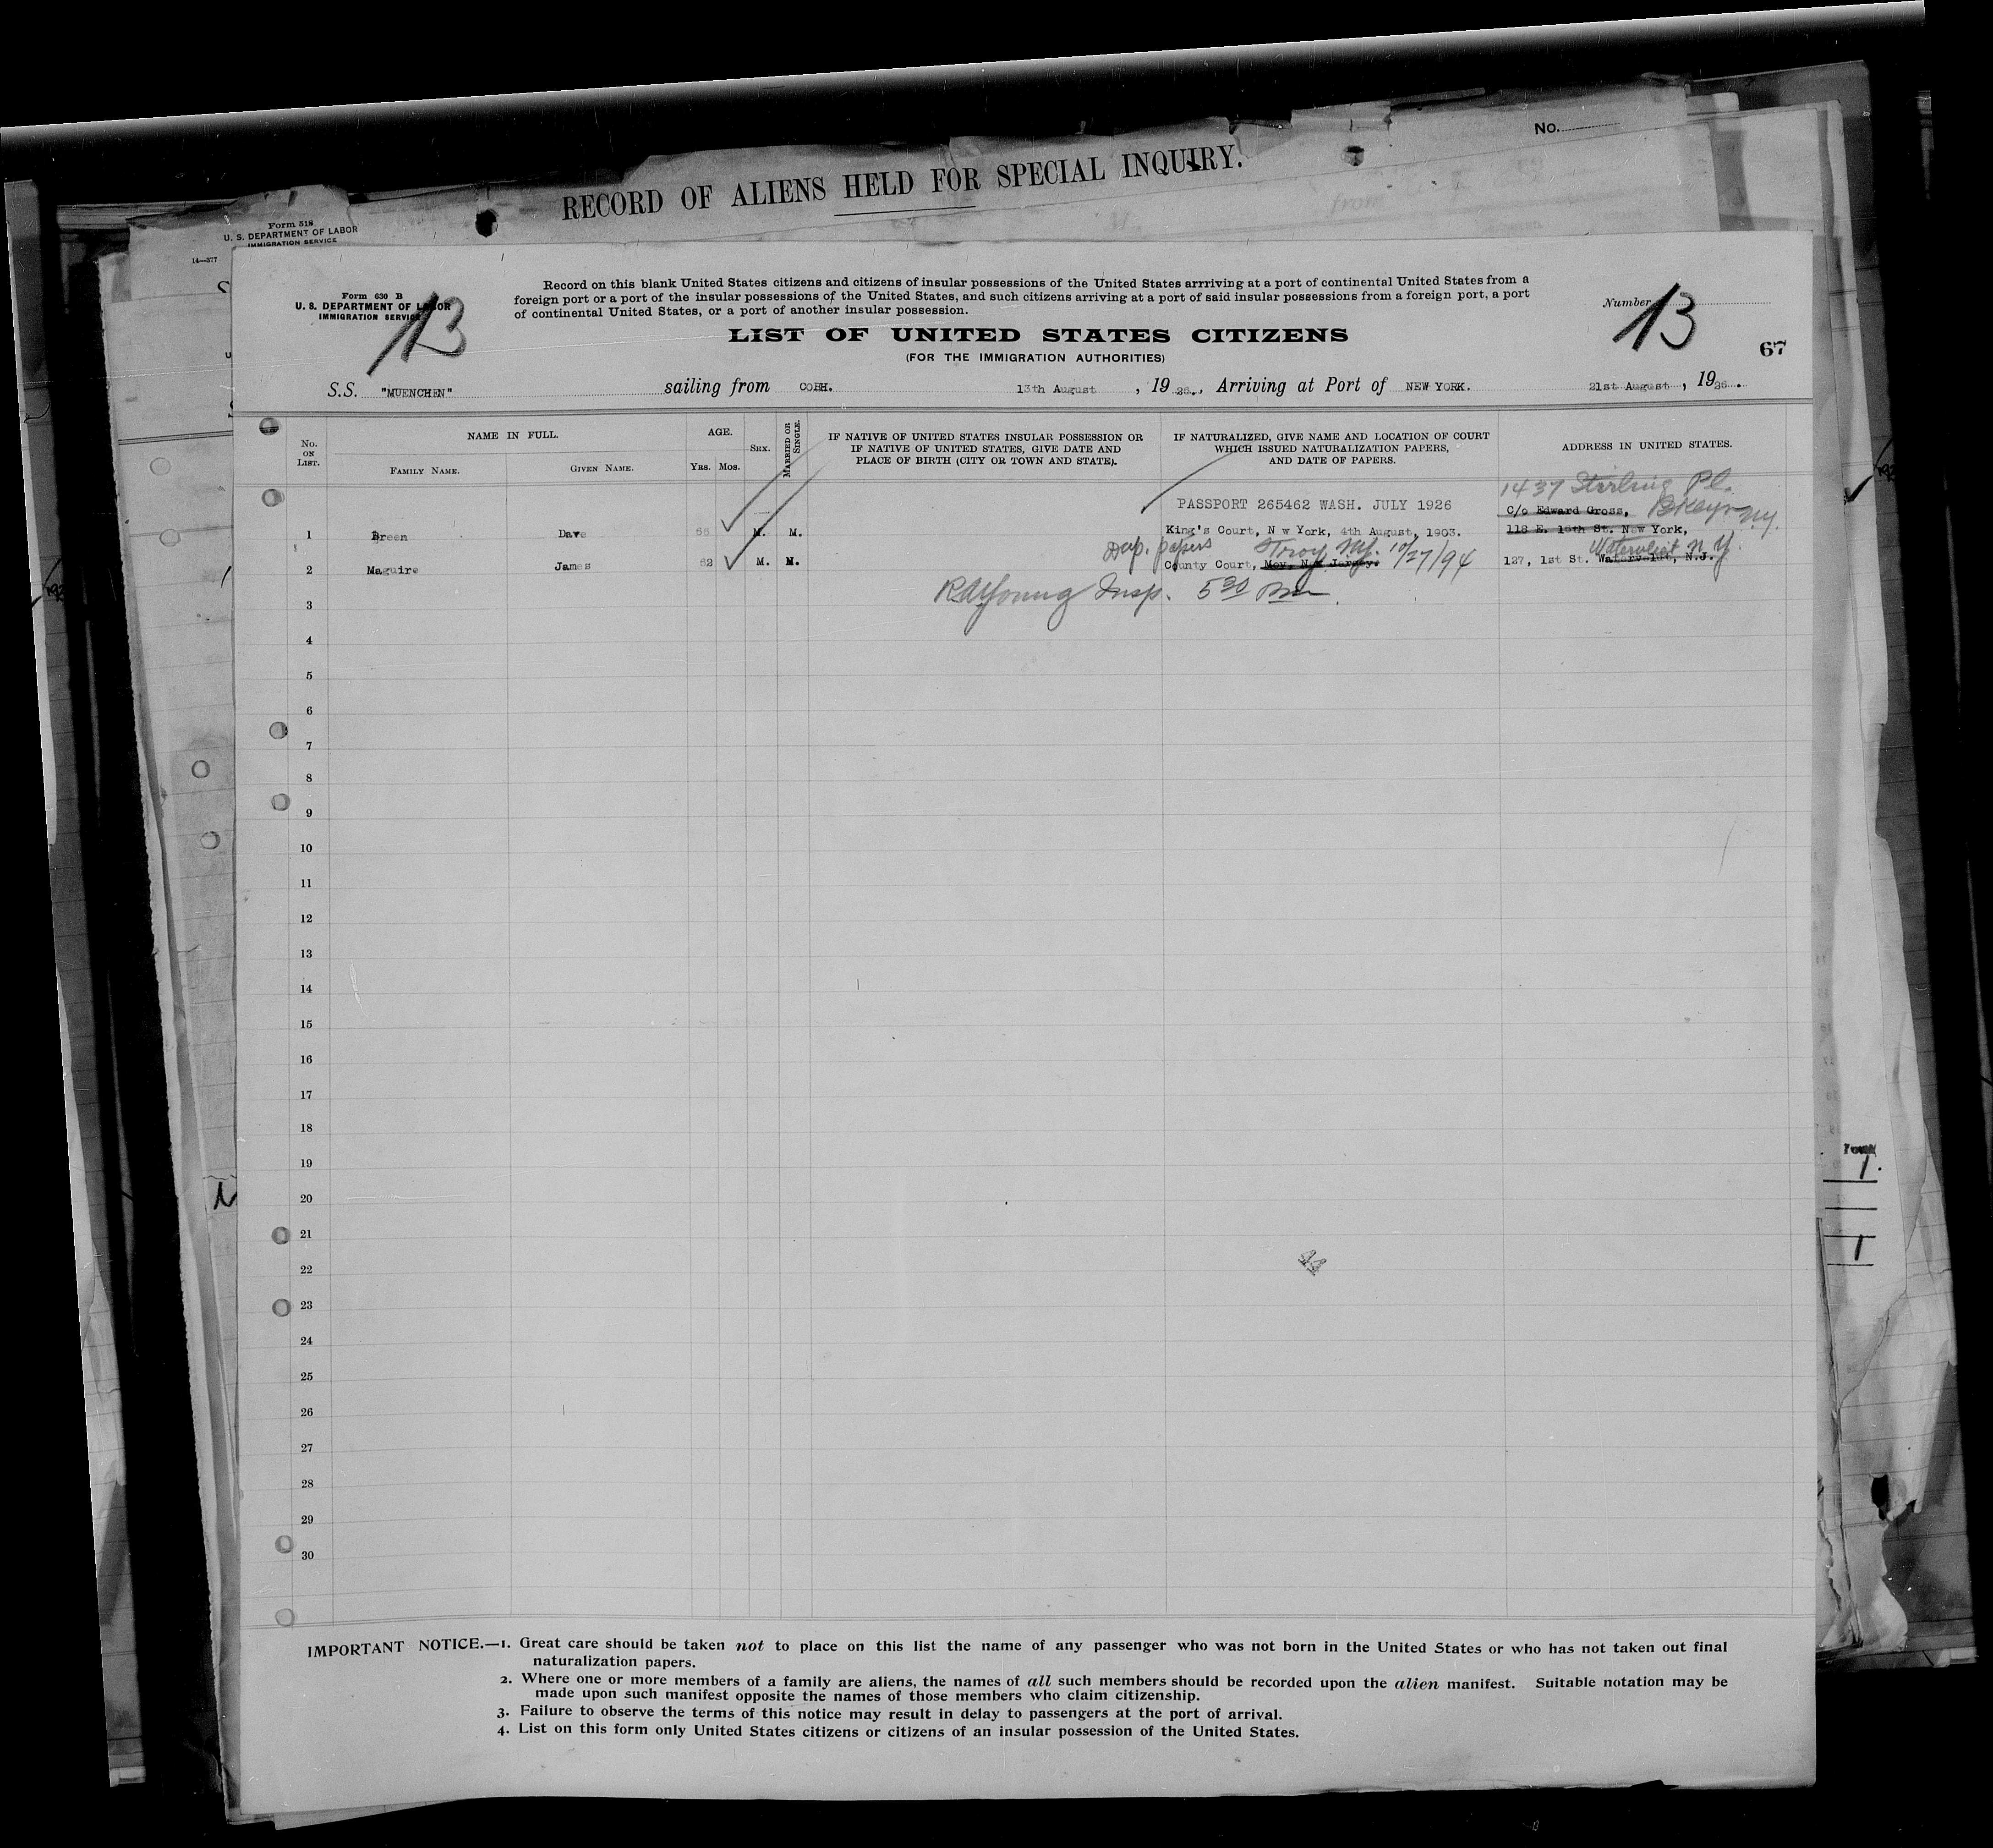 No.
RECORD OF ALIENS HELD FOR SPECIAL INQUIRY.
Form 518
U. S. DEPARTMENT OF LABOR
IMMIGRATION SERVICE
14—377
Form 630 B
U. S. DEPARTMENT OF LABOR
IMMIGRATION SERVICE
13
Record on this blank United States citizens and citizens of insular possessions of the United States arrriving at a port of continental United States from a
foreign port or a port of the insular possessions of the United States, and such citizens arriving at a port of said insular possessions from a foreign port, a port
of continental United States, or a port of another insular possession.
Number
13
67
LIST OF UNITED STATES CITIZENS
(FOR THE IMMIGRATION AUTHORITIES)
S.S. "MUENCHEN" sailing from COBH. 13th August, 1926., Arriving at Port of NEW YORK. 21st August, 1926.
No. ON LIST.
NAME IN FULL.
FAMILY NAME.
GIVEN NAME.
AGE.
YRS. MOS.
SEX.
MARRIED OR SINGLE.
IF NATIVE OF UNITED STATES INSULAR POSSESSION OR
IF NATIVE OF UNITED STATES, GIVE DATE AND
PLACE OF BIRTH (CITY OR TOWN AND STATE).
IF NATURALIZED, GIVE NAME AND LOCATION OF COURT
WHICH ISSUED NATURALIZATION PAPERS,
AND DATE OF PAPERS.
ADDRESS IN UNITED STATES.
1437 Sterling Pl.
PASSPORT 265462 WASH. JULY 1926
C/o Edward Gross, Bklyn NY.
1 Breen Dave M. M. King's Court, N w York, 4th August, 1903. 118 E. 16th St. New York,
Dup. papers Troy NY. 10/27/94 Watervliet N.Y.
2 Maguire James 62 M. M. County Court, Jersey. 127, 1st St. N.J.
RAYoung Insp. 5 30
3
4
5
6
7
8
9
10
11
12
13
14
15
16
17
18
19
20
21
22
23
24
25
26
27
28
29
30
1.
1
IMPORTANT NOTICE.—1. Great care should be taken not to place on this list the name of any passenger who was not born in the United States or who has not taken out final
naturalization papers.
2. Where one or more members of a family are aliens, the names of all such members should be recorded upon the alien manifest. Suitable notation may be
made upon such manifest opposite the names of those members who claim citizenship.
3. Failure to observe the terms of this notice may result in delay to passengers at the port of arrival.
4. List on this form only United States citizens or citizens of an insular possession of the United States.